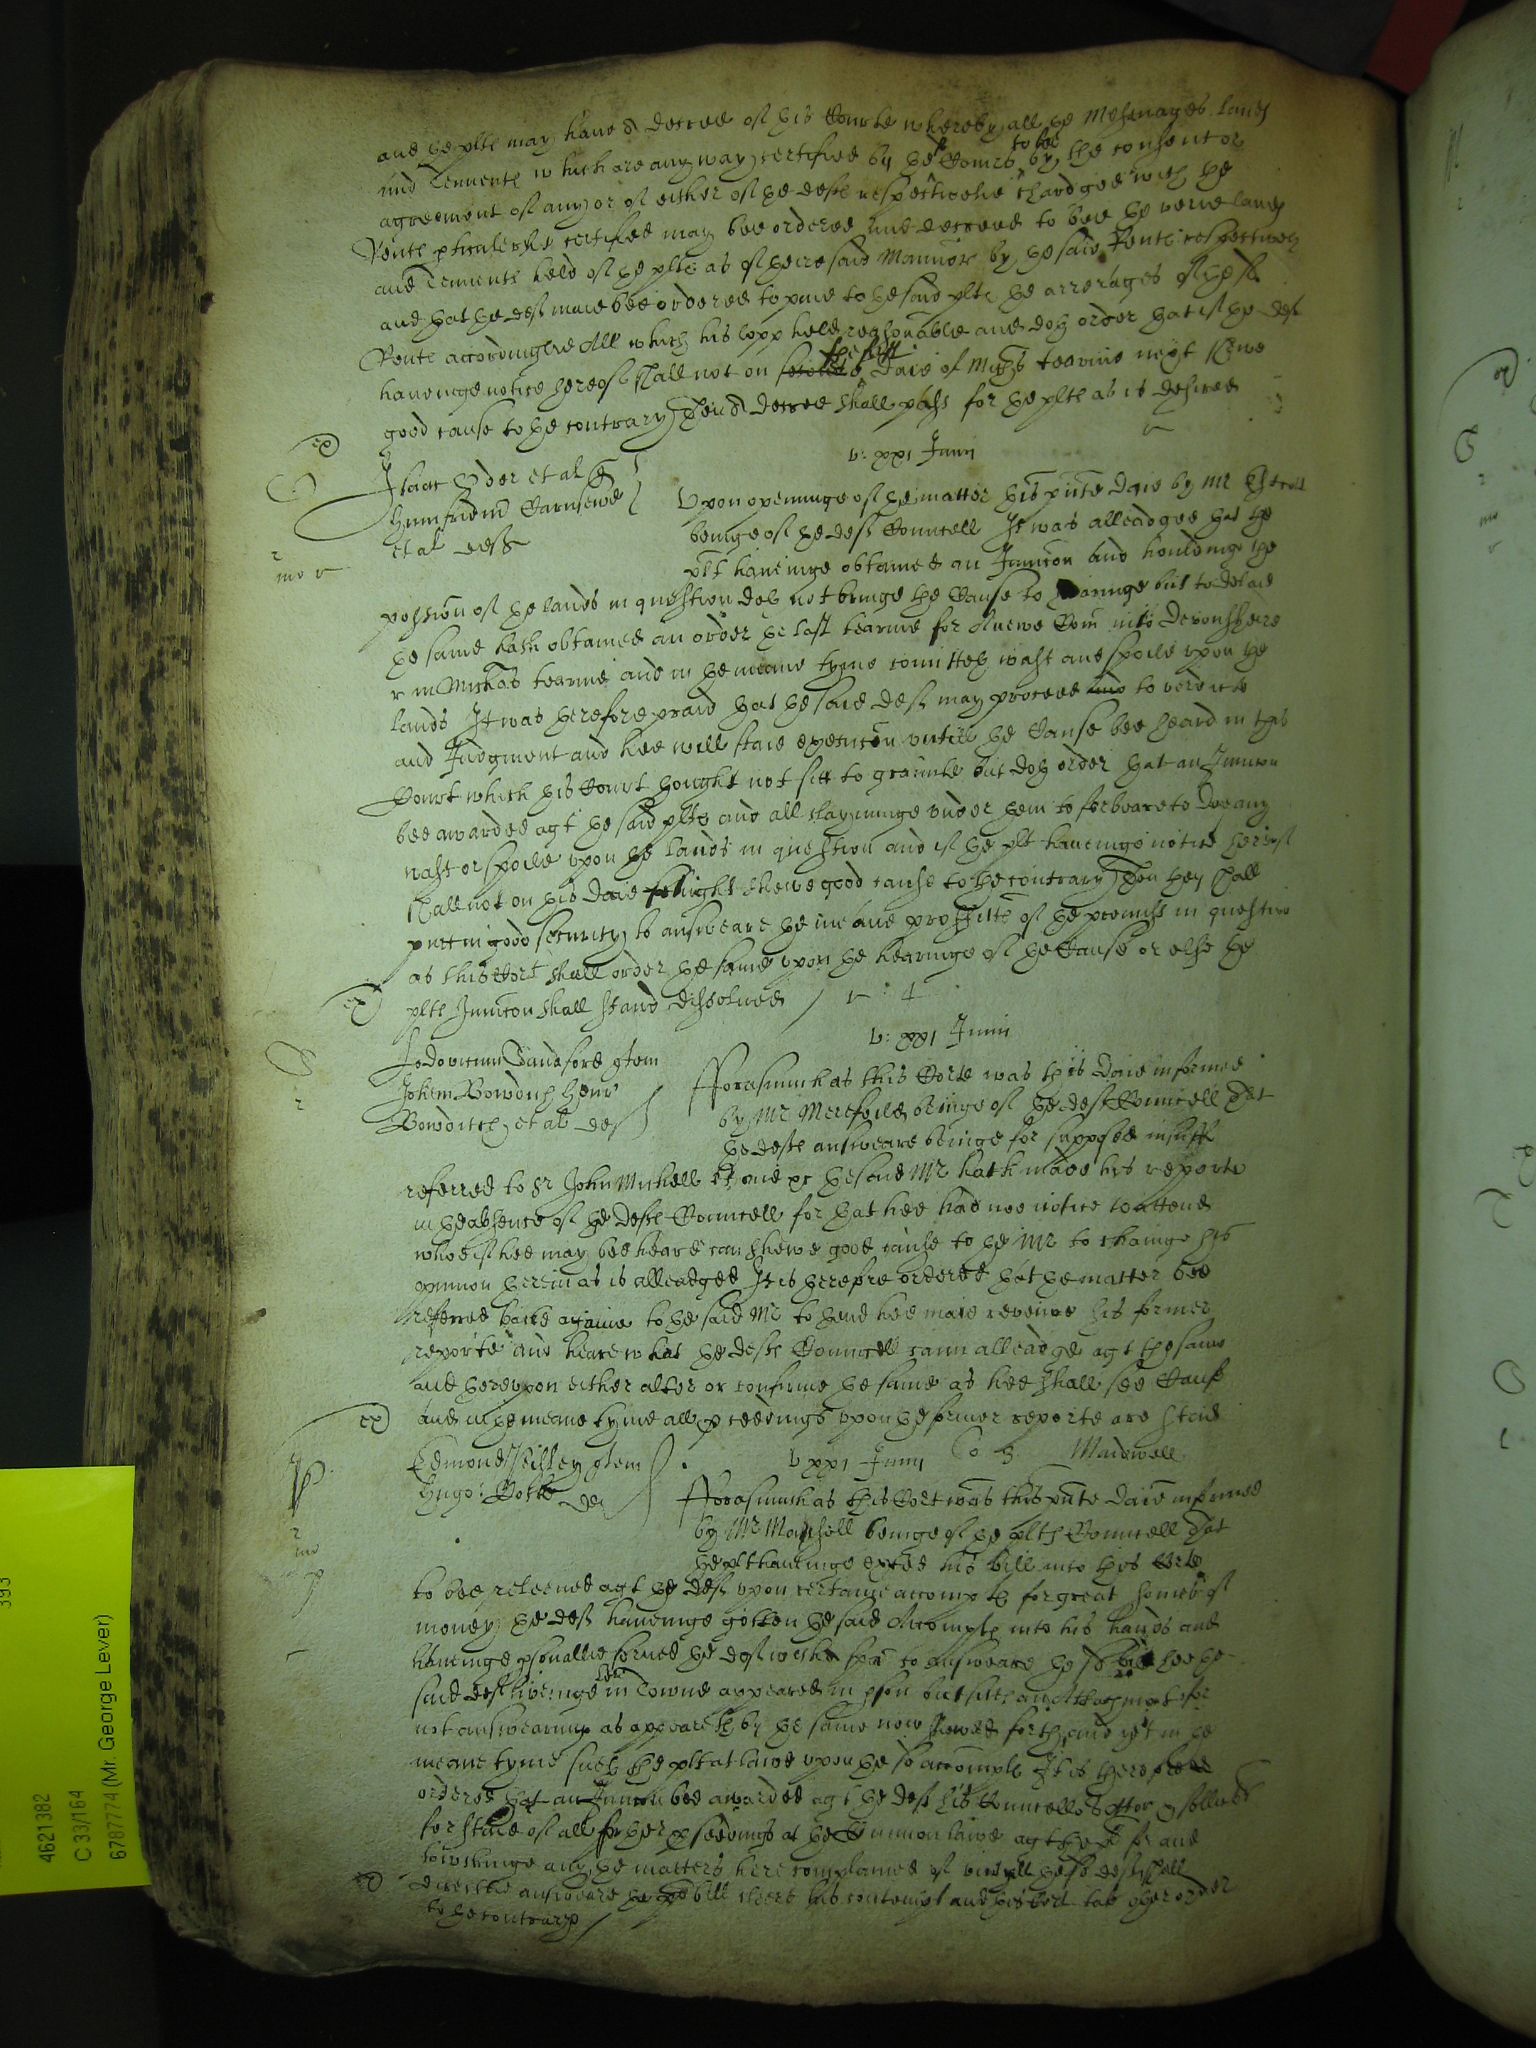 and the plte may have a decree of this Courte whereby all the Messuages lands
and Tennemts which are any way certified by the Comrs to bee by the consent or
agreement of any or of either of the defts respectivelie chardged with the
Rente pticulerlie certified may bee ordered and decreed to bee the verie lands
and Tenemts held of the plte as of theire said Mannor by the said Rents respectively
and that the deft maie bee ordered to paie to the said plte the arrerages of the sd
Rente accordinglie All which this lopp held reasonable and doth order that if the deft
haveinge notice hereof shall not on the first daie of Michs tearme next shewe
good cause to the contrary Then a decree shall passe for the plte as is desired
v: xxi Junii
Isaac et al
Humfridm Carnsewe
et al defts
Upon openinge of the matter this pnte daie by Mr
beinge of the defts Councell It was alleadged that the
plt haveinge obtained an Iniuncon and houldinge the
possion of the lands in question doth not bringe the Cause to hearinge but to delaie
the same hath obtained an order the last tearme for a newe Com into Devonsheere
r in Michas tearme and in the meane tyme comitteth wast and spoile upon the
lands It was therefore praid that the said deft may proceed to verdicte
and Judgment and hee will staie execucon untill the Cause bee heard in this
Court which this Court thought not fitt to graunte but doth order that an Iniuncon
bee awarded agt the said plte and all clayminge under them to forbeare to doe any
wast or spoile upon the lands in question and if the plt haveinge notice hereof
shall not on this daie senight shewe good cause to the contrary Then they shall
putt in good security to answeare the meane proffitts of the premiss in question
as this Cort shall order the same upon the hearinge of the Cause or else the
plte Iniuncon shall stand dissolved
v: xxi Junii
Lodovicum Sandford quem
Johem Bowdich Henr
Bowditch et al def
Fforasmuch as this Corte was this daie informed
by Mr Merefeild beinge of the deft Councell That
the defte answeare beinge for supposed insuff
referred to Sr John Michell the said Mr hath made his reporte
in the absence of the defte Councell for that hee had noe notice to attend
whoe if hee may bee heard can shewe good cause to the Mr to change his
opinion therein as is alleadged It is therefore ordered that the matter bee
referred backe againe to the said Mr to thend hee maie reveiwe his former
reporte and heare what the defte Councell cann alleadge agt the same
and thereupon either alter or confirme the same as hee shall see Cause
and in the meane tyme all pceedings upon the former reporte are staid
Edmond quem
Hugo: def
v xxi Junii Maidwell
Fforasmuch as this Cort was this pnte daie informed
by Mr Marshall beinge of the plts Councell That
the plt haveinge exted his bill into this Corte
to bee releived agt the deft upon certaine accompts for great somes of
money the deft haveinge gotten the said Accompts into his hands and
haveinge psonallie served the deft with a spa to answeare the sd bill hee the
said deft liveinge in Towne appeared in pson but sitts an Attachmt for
not answearing as appeareth by the same now shewed forth and yet in the
meane tyme sueth the plt at lawe upon the sd accompts It is therefore
ordered that an Iniuncon bee awarded agt the deft his Councellors Attor & sollicrs
for staie of all further pceedings at the Common lawe agt the plt for and
touchinge any the matters here complained of untill the sd deft shall
directlie answeare the bill cleere his contempt and this Cort take other order
to the contrary
393
4621382
C 33/164
6787774 (Mr. George Lever)